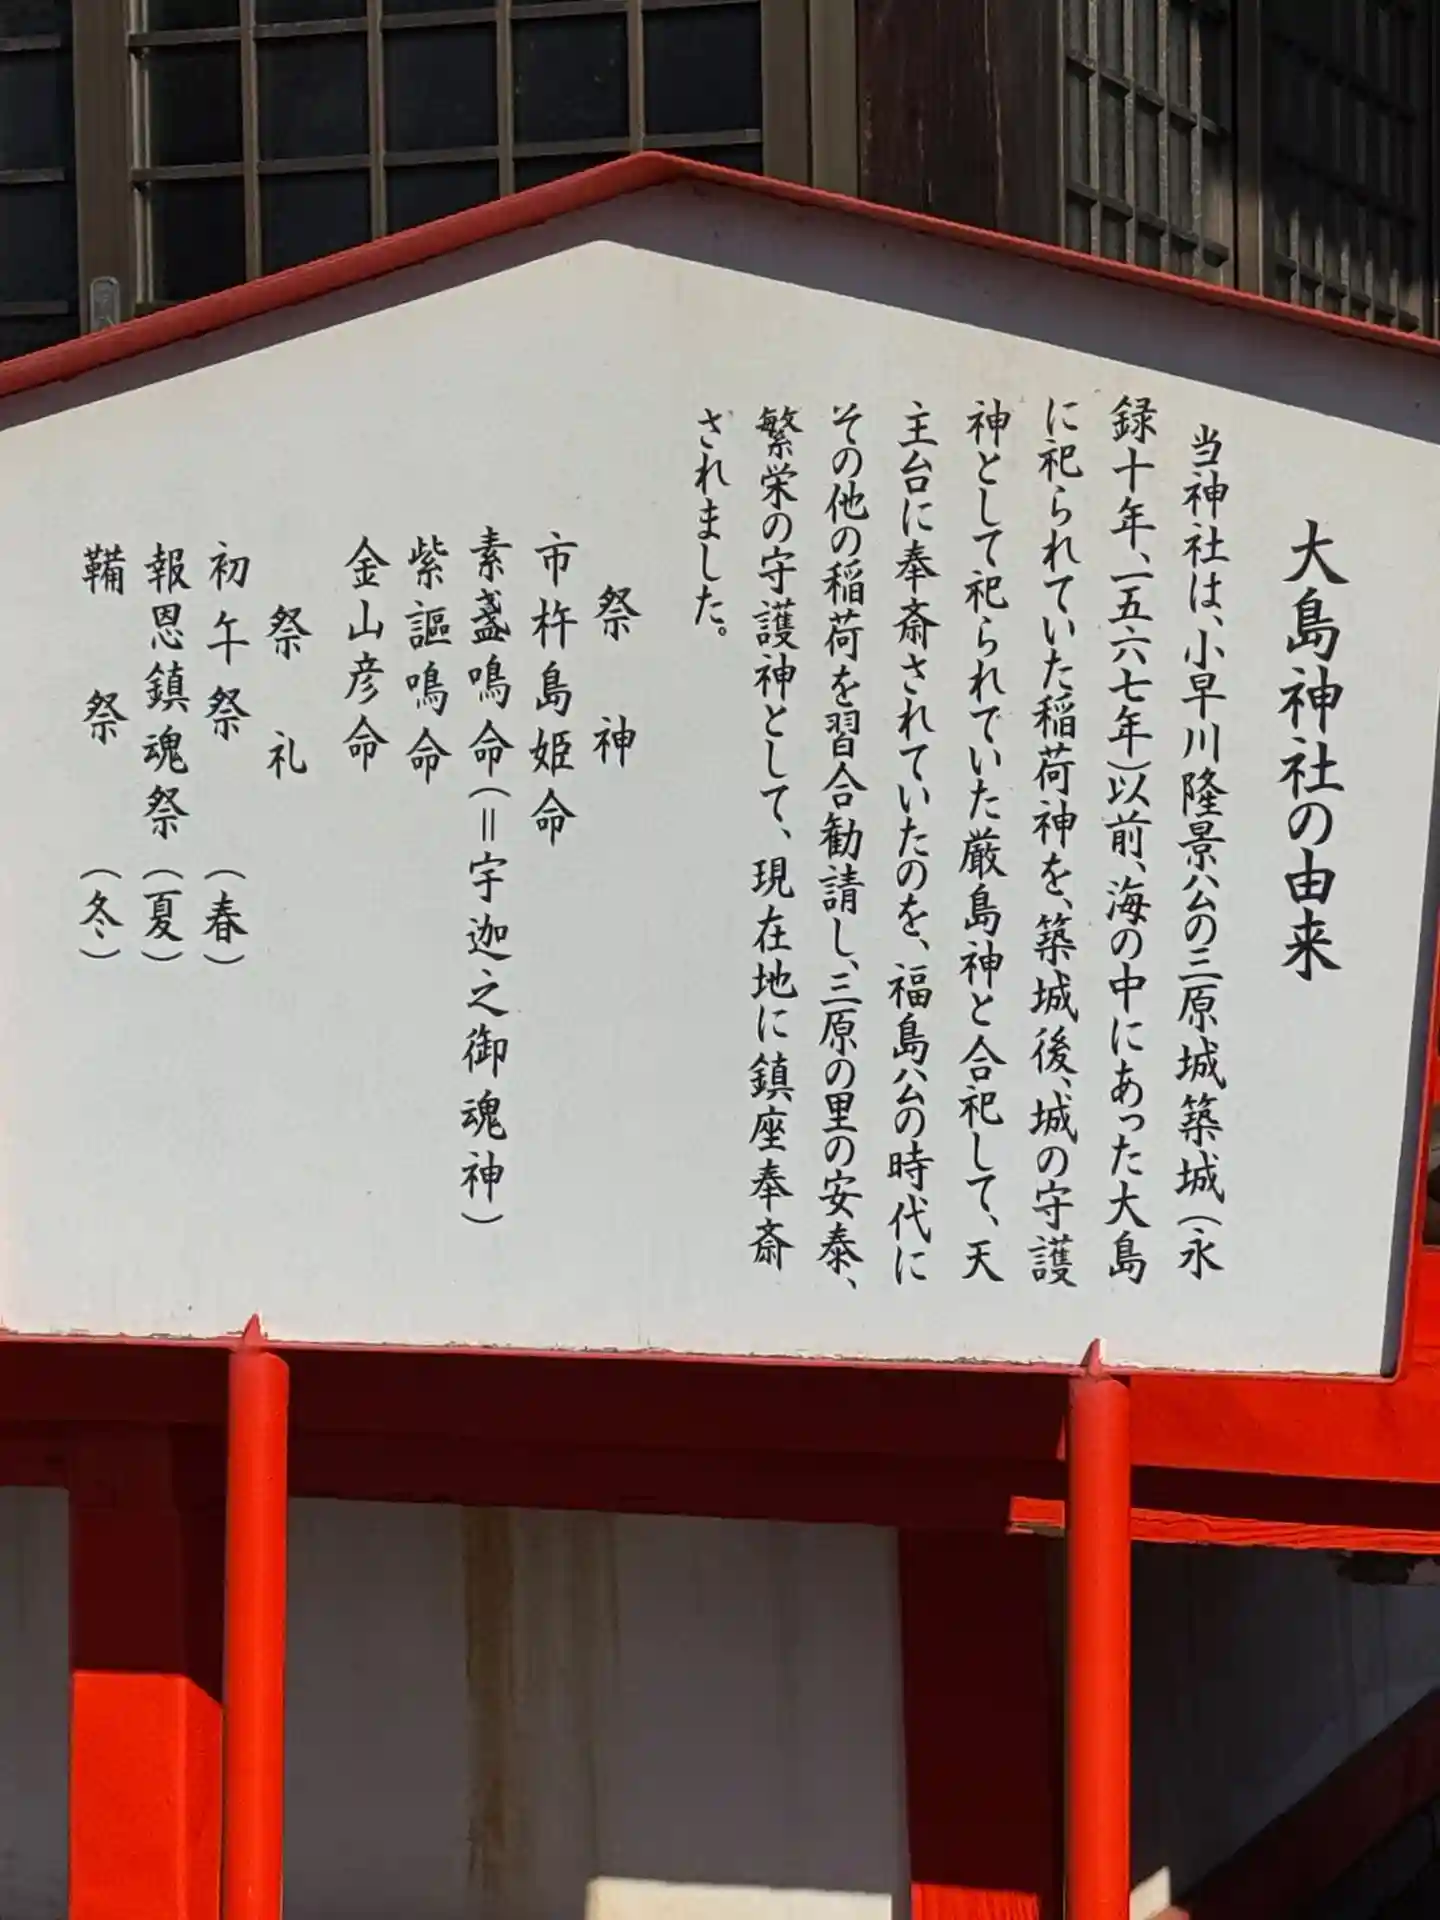 大島神社の由来
当神社は、小早川隆景公の三原城築城（永
録十年、一五六七年）以前、海の中にあった大島
に祀られていた稲荷神を、築城後、城の守護
神として祀られていた厳島神と合祀して、天
主台に奉斎されていたのを、福島公の時代に
その他の稲荷を習合勧請し、三原の里の安泰、
繁栄の守護神として、現在地に鎮座奉斎
されました。
祭神
市杵島姫命
素盞鳴命（＝宇迦之御魂神）
紫謳鳴命
金山彦命
祭礼
初午祭（春）
報恩鎮魂祭（夏）
鞴祭（冬）